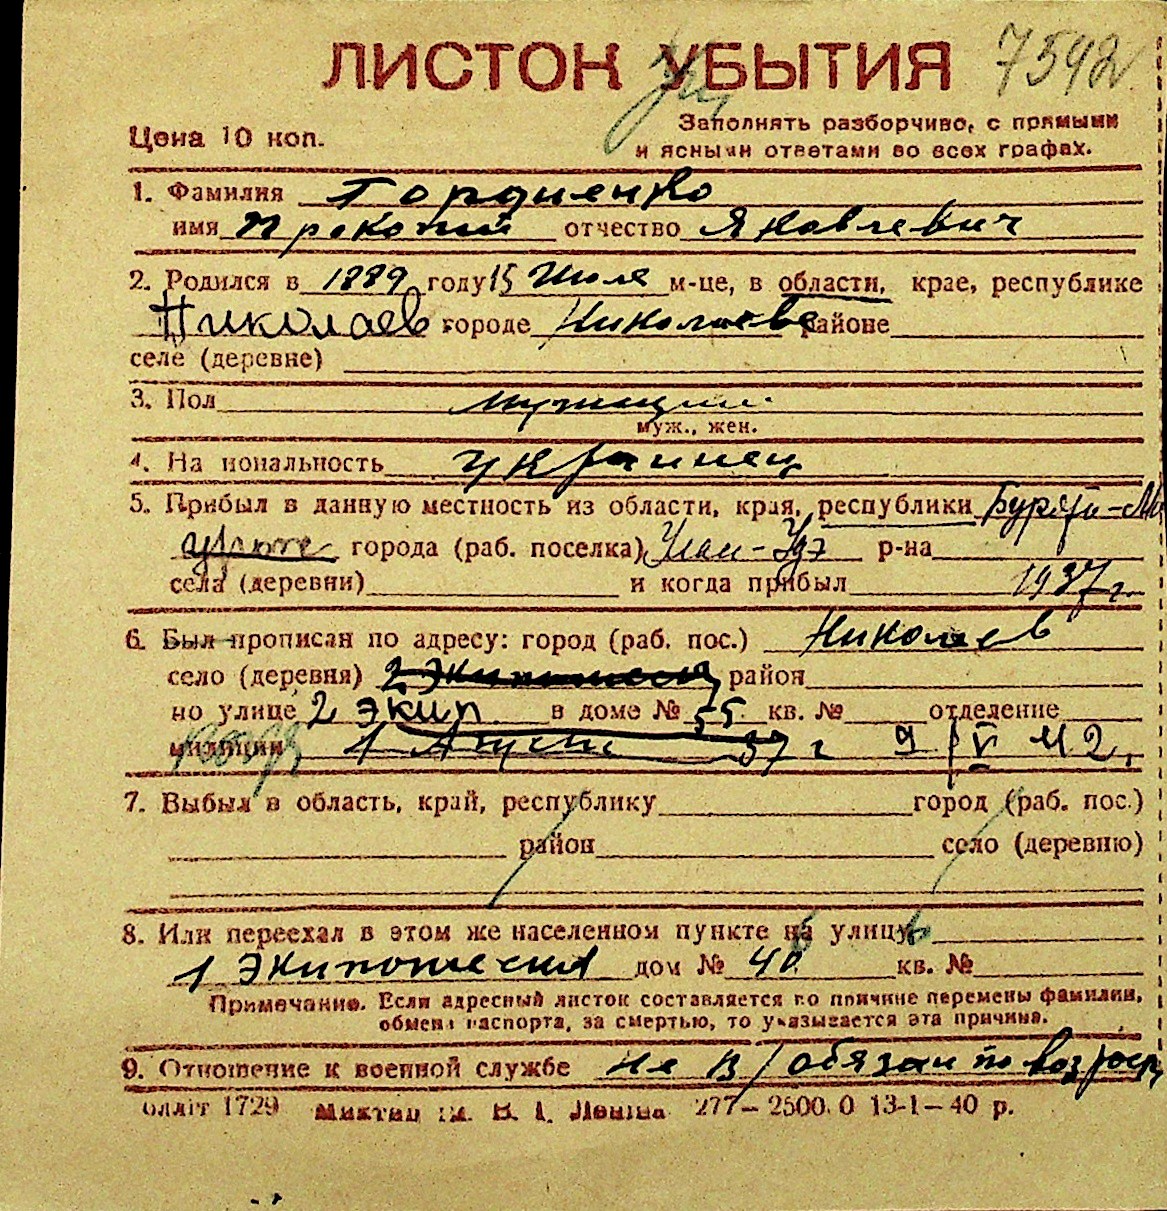 ЛИСТОК УБЫТИЯ 7592
Цена 10 коп. Заполнять разборчиво, с прямыми
и ясными ответами во всех графах.
1. Фамилия Гордиенко
имя Прокопий отчество Яковлевич
2. Родился в 1889 году 15 Июля м-це, в области, крае, республике
Николаев городе Николаеве районе
селе (деревне)
3. Пол мужчина
муж., жен.
4. Национальность украинец
5. Прибыл в данную местность из области, края, республики Бурят-М
города (раб. поселка) Улан-Удэ р-на
села (деревни) и когда прибыл 1937 г.
6. Был прописан по адресу: город (раб. пос.) Николаев
село (деревня) район
по улице 2 Экип в доме № 55 кв. № отделение
милиции 1 Августа 37 г 9/V 42.
7. Выбыл в область, край, республику город (раб. пос.)
район село (деревню)
8. Или переехал в этом же населенном пункте на улицу
1 Экипажеская дом № 40 кв. №
Примечание. Если адресный листок составляется по причине перемены фамилии,
обмена паспорта, за смертью, то указывается эта причина.
9. Отношение к военной службе не в/обязан по возрасту
блліт 1729 ім. В. І. Леніна 277—2500. 0 13-1—40 р.